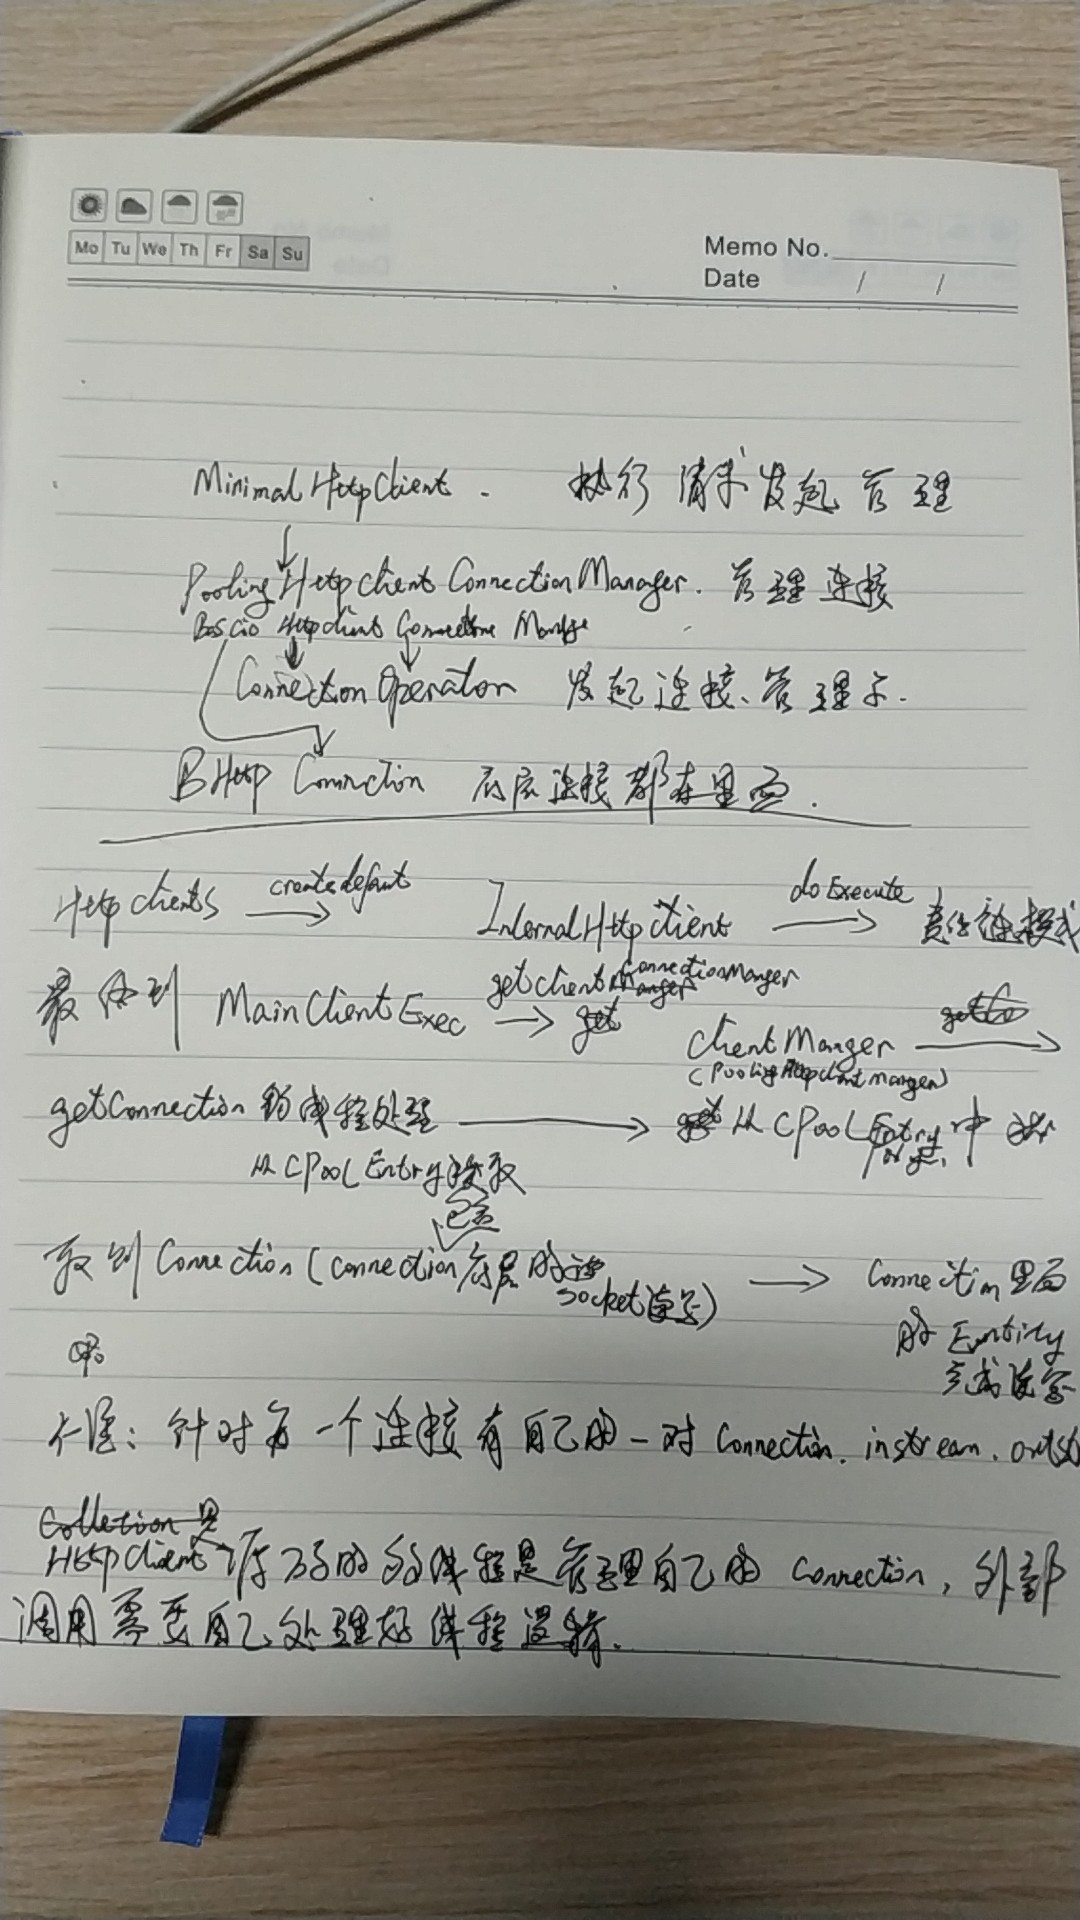 Mo Tu We Th Fr Sa Su
Memo No.
Date / /
Minimal HttpClient. 执行请求发起管理
Pooling HttpClient Connection Manager. 管理连接
Httpclient Connection
Connection Operation 发起连接、管理
BHttp Connection 底层连接都在里面.
Httpclients createdefaut InternalHttpclient doExecute 责任链模式
最终到 MainClientExec getclient ConnectionManger
Client Manger
(Pooling Httpclient manger)
getConnection 线程处理 从CPoolEntry中
从CPoolEntry获取
包含
取到Connection (connection底层的 socket) Connection里面
的Entity
完成读写
针对每一个连接有自己的一对Connection. instream. outst
Colletion 是
HttpClient 的线程是管理自己的 Connection, 外部
调用需要自己处理好线程逻辑.